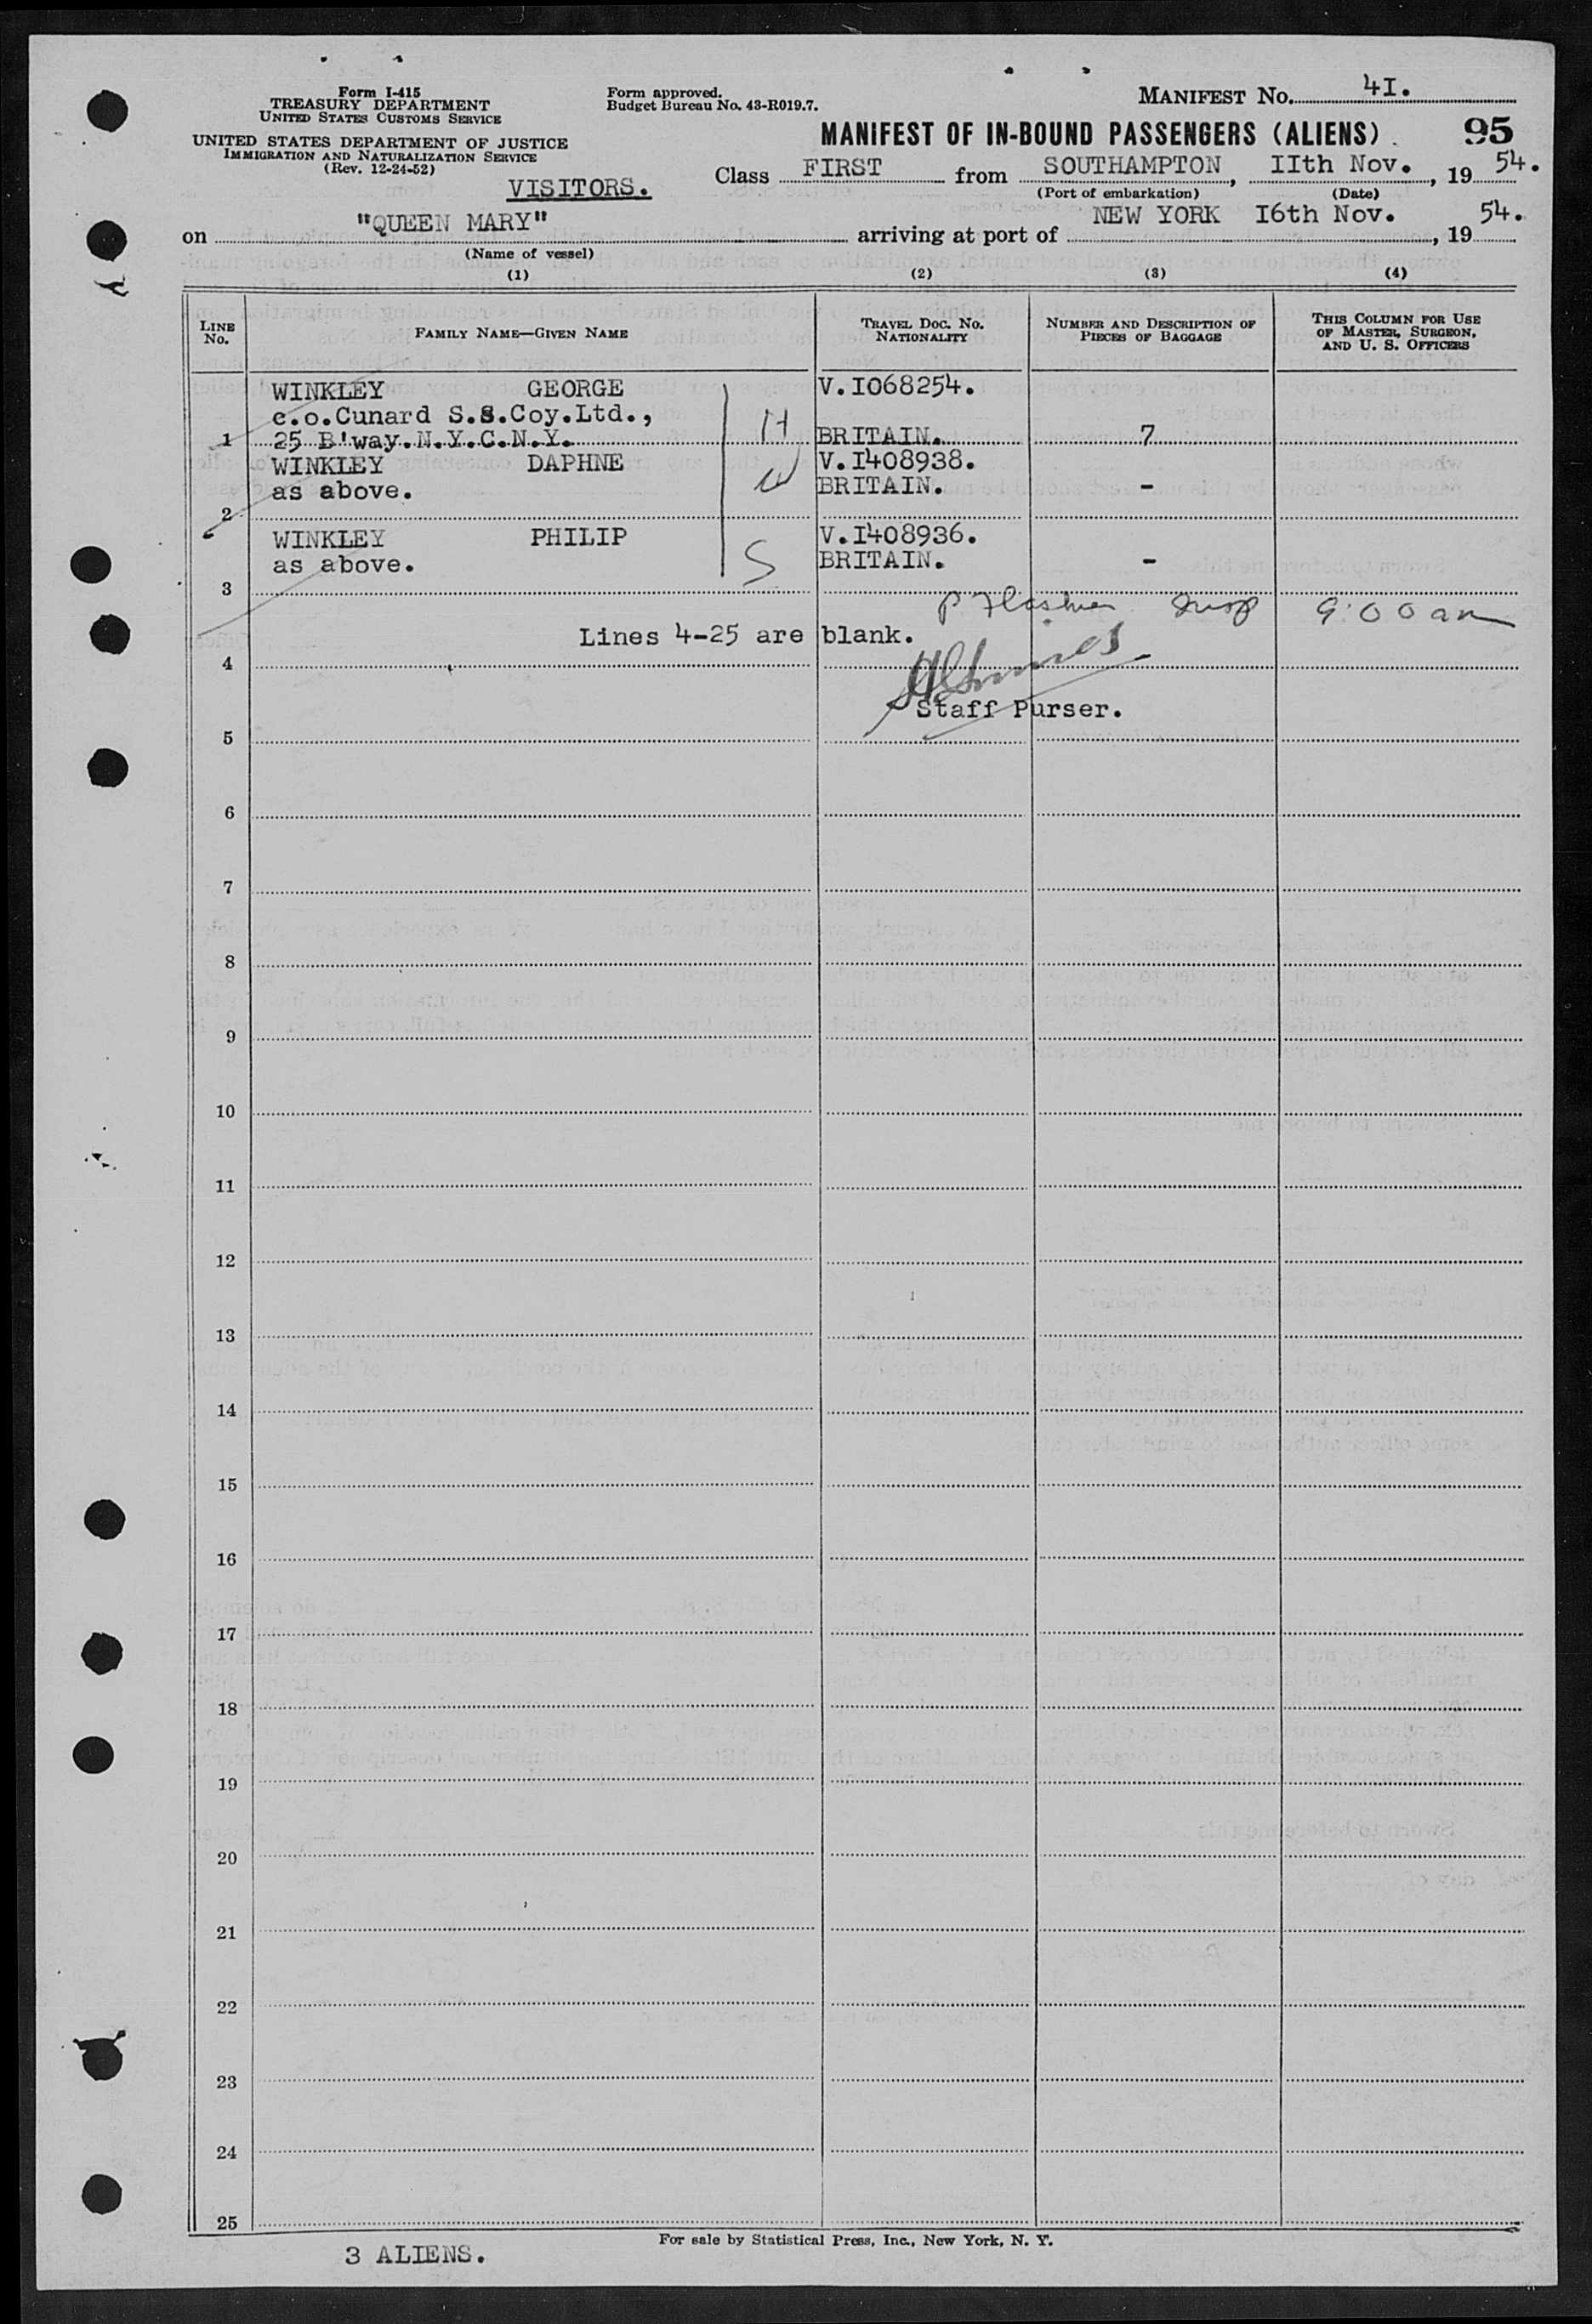 Form I-415
TREASURY DEPARTMENT
UNITED STATES CUSTOMS SERVICE
UNITED STATES DEPARTMENT OF JUSTICE
IMMIGRATION AND NATURALIZATION SERVICE
(Rev. 12-24-52)
Form approved.
Budget Bureau No. 43-R019.7.
MANIFEST NO. 4I.
MANIFEST OF IN-BOUND PASSENGERS (ALIENS) 95
VISITORS.
Class FIRST from SOUTHAMPTON, IIth Nov., 19 54.
(Port of embarkation) (Date)
on "QUEEN MARY" arriving at port of NEW YORK I6th Nov., 19 54.
(Name of vessel)
(1) (2) (3) (4)
LINE No. FAMILY NAME—GIVEN NAME TRAVEL DOC. NO. NATIONALITY NUMBER AND DESCRIPTION OF PIECES OF BAGGAGE THIS COLUMN FOR USE OF MASTER, SURGEON, AND U. S. OFFICERS
WINKLEY GEORGE V.I068254.
c.o.Cunard S.S.Coy.Ltd.,
1 25 B'way.N.Y.C.N.Y. H BRITAIN. 7
WINKLEY DAPHNE V.I408938.
as above. W BRITAIN. -
2
WINKLEY PHILIP V.I408936.
as above. S BRITAIN. -
3
9:00 am
Lines 4-25 are blank.
4
Staff Purser.
5
6
7
8
9
10
11
12
13
14
15
16
17
18
19
20
21
22
23
24
25
For sale by Statistical Press, Inc., New York, N. Y.
3 ALIENS.